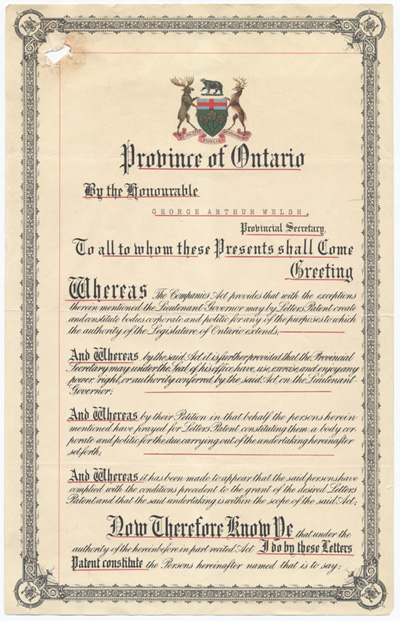 Province of Ontario
By the Honourable
GEORGE ARTHUR WELSH,
Provincial Secretary
To all to whom these Presents shall Come
Greeting
Whereas The Companies Act provides that with the exceptions
therein mentioned the Lieutenant-Governor may by Letters Patent create
and constitute bodies corporate and politic for any of the purposes to which
the authority of the Legislature of Ontario extends;
And Whereas by the said Act it is further provided that the Provincial
Secretary may under the Seal of his office have, use, exercise and enjoy any
power, right, or authority conferred by the said Act on the Lieutenant
Governor;
And Whereas by their Petition in that behalf the persons herein
mentioned have prayed for Letters Patent constituting them a body cor-
porate and politic for the due carrying out of the undertaking hereinafter
set forth;
And Whereas it has been made to appear that the said persons have
complied with the conditions precedent to the grant of the desired Letters
Patent and that the said undertaking is within the scope of the said Act;
Now Therefore Know Ye that under the
authority of the hereinbefore in part recited Act I do by these Letters
Patent constitute the Persons hereinafter named that is to say: